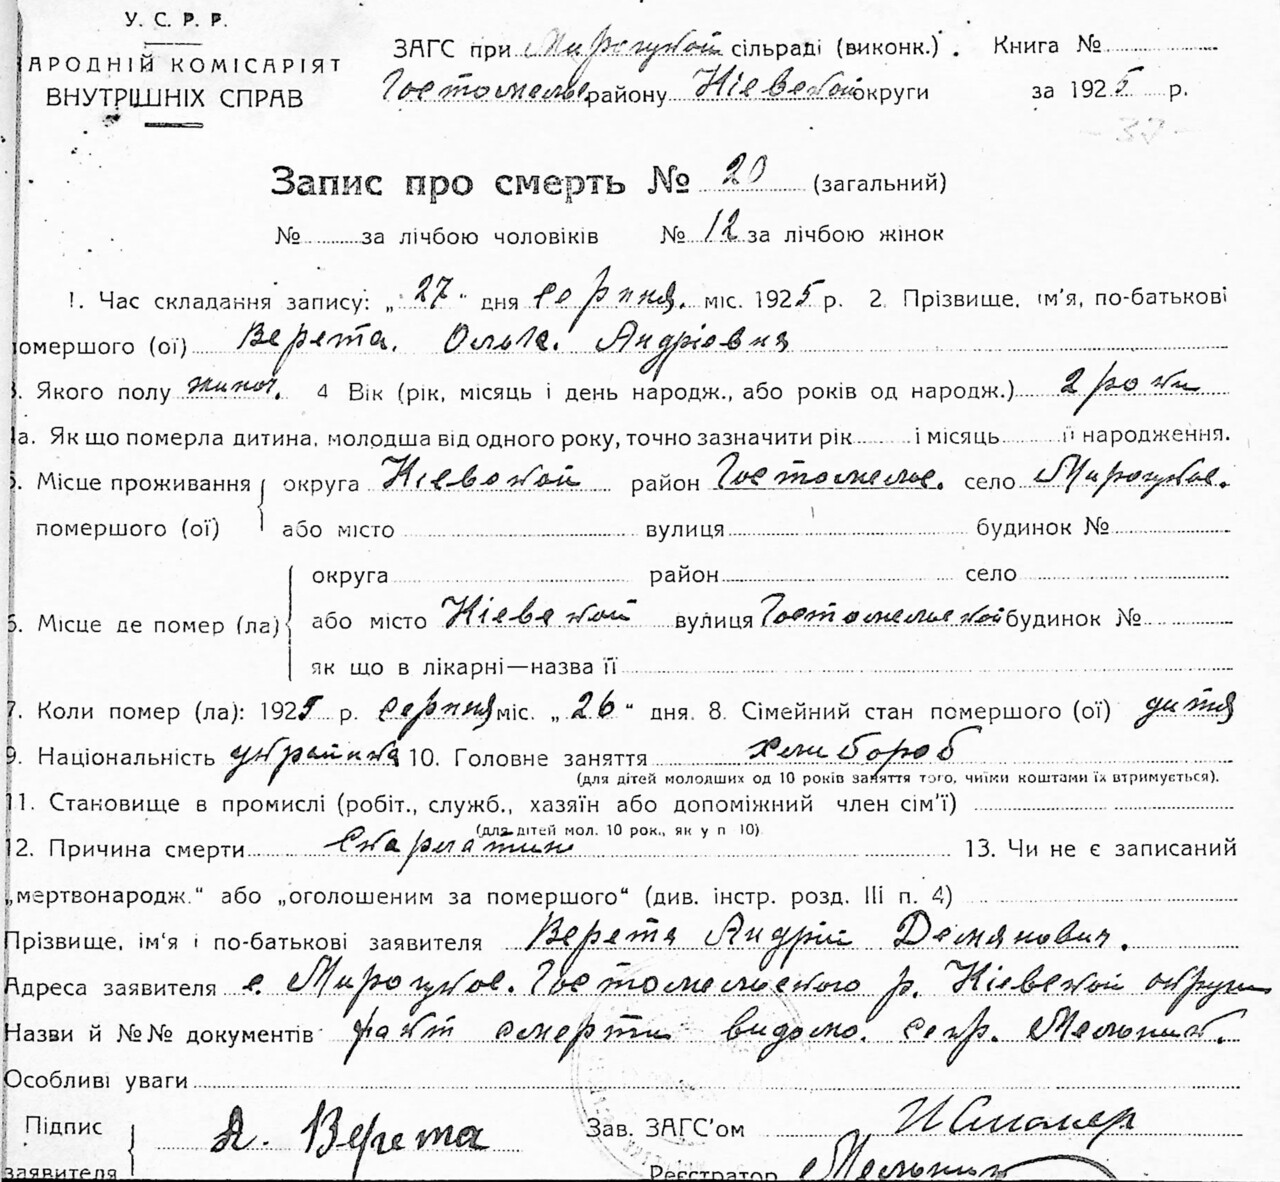 У. С. Р. Р.
АРОДНІЙ КОМІСАРІЯТ
ВНУТРІШНІХ СПРАВ
ЗАГС при Мироцукой сільраді (виконк.). Книга №
Гостомельс району Кіевской округи за 1925 р.
Запис про смерть № 20 (загальний)
№ за лічбою чоловіків № 12 за лічбою жінок
1. Час складання запису: „27“ дня серпня. міс. 1925 р. 2. Прізвище, ім'я, по-батькові
омершого (ої) Верета. Ольга. Андріовна
3. Якого полу жиноч. 4 Вік (рік, місяць і день народж., або років од народж.) 2 роки
а. Як що померла дитина, молодша від одного року, точно зазначити рік і місяць її народження.
5. Місце проживання округа Кіевской район Гостомельс. село Мироцкое.
помершого (ої) або місто вулиця будинок №
округа район село
6. Місце де помер (ла) або місто Кіевской вулиця Гостомельской будинок №
як що в лікарні—назва її
7. Коли помер (ла): 1925 р. серпня міс. „26“ дня. 8. Сімейний стан помершого (ої) дитя
9. Національність украйинка 10. Головне заняття хлибороб
(для дітей молодших од 10 років заняття того, чиїми коштами їх втримується).
11. Становище в промислі (робіт., служб., хазяїн або допоміжний член сім'ї)
(для дітей мол. 10 рок., як у п 10)
12. Причина смерти Скарлатина 13. Чи не є записаний
„мертвонародж.“ або „оголошеним за помершого“ (див. інстр. розд. III п. 4)
Прізвище, ім'я і по-батькові заявителя Верета Андрій Демянович.
Адреса заявителя с. Мироцкое. Гостомельского р. Кіевской округи
Назви й №№ документів факт смерти видомо. секр. Мельник.
Особливі уваги
Підпис А. Верета Зав. ЗАГС'ом
заявителя Реєстратор Мельник